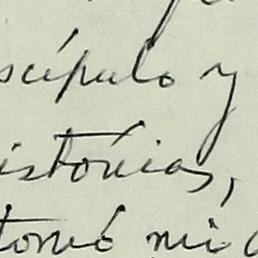 scípulo y
istórias,
tomó mi